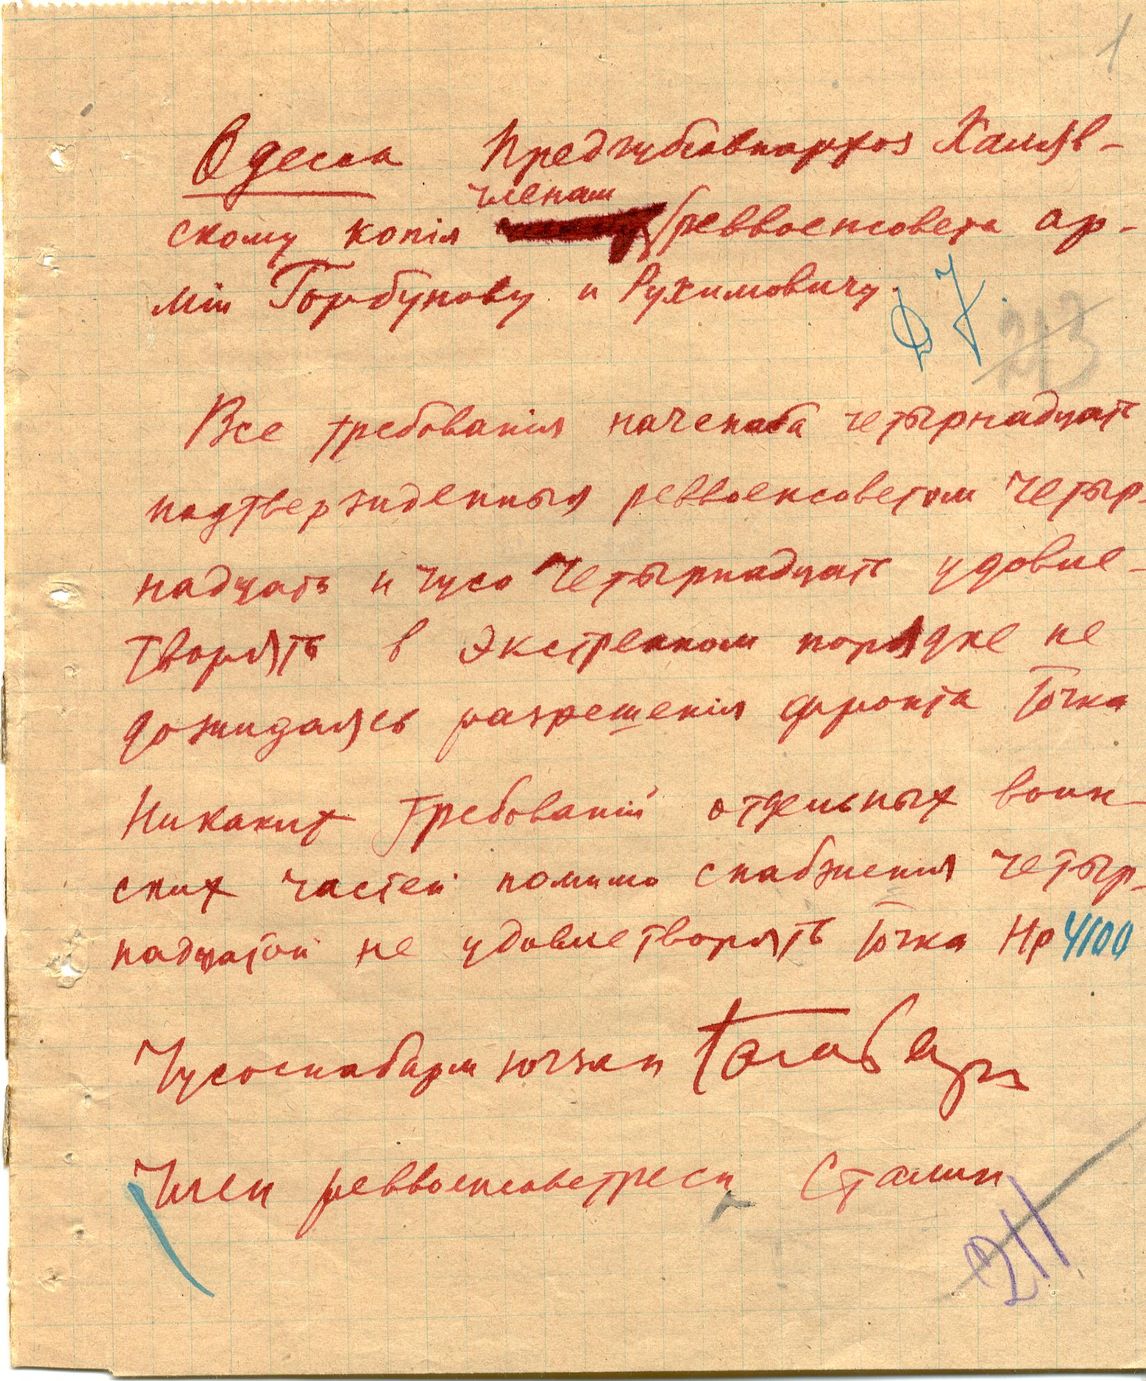 1
Одесса Предгубсовнархоз Каляв-
членам
скому копія реввоенсовета ар-
міи Горбунову и Рухимовичу.
213
Все требованія начснаба четырнадцать
подтвержденныя реввоенсоветом четыр
надцать и чусо четырнадцать удовле-
творять в экстренном порядке не
дожидаясь разрешенія фронта точка
Никаких требованій отдельных воин-
ских частей помимо снабженія четыр-
надцатой не удовлетворять точка Нр 4100
Чусоснабарм югзап
Член реввоенсоветресп Сталин
211